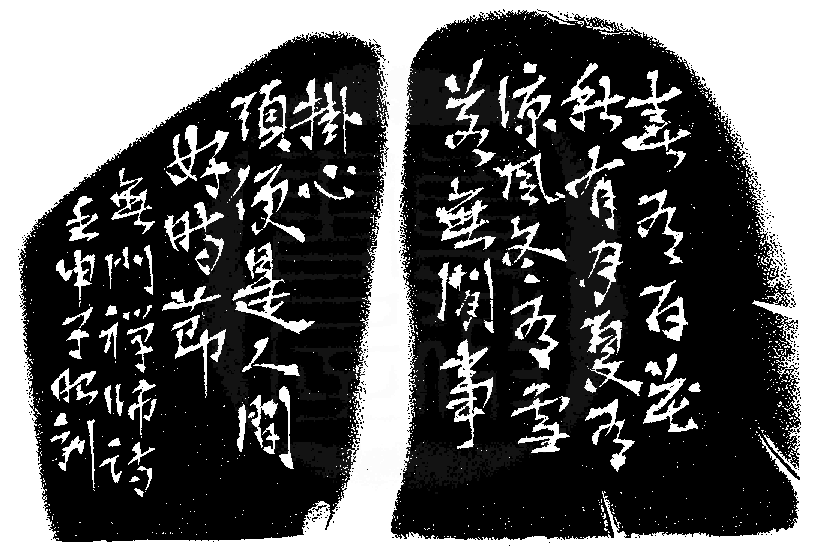 春有百花
秋有月夏有
涼風冬有雪
若無閒事
掛心
頭便是人間
好時節
無門禪師詩
壬申子昭刻